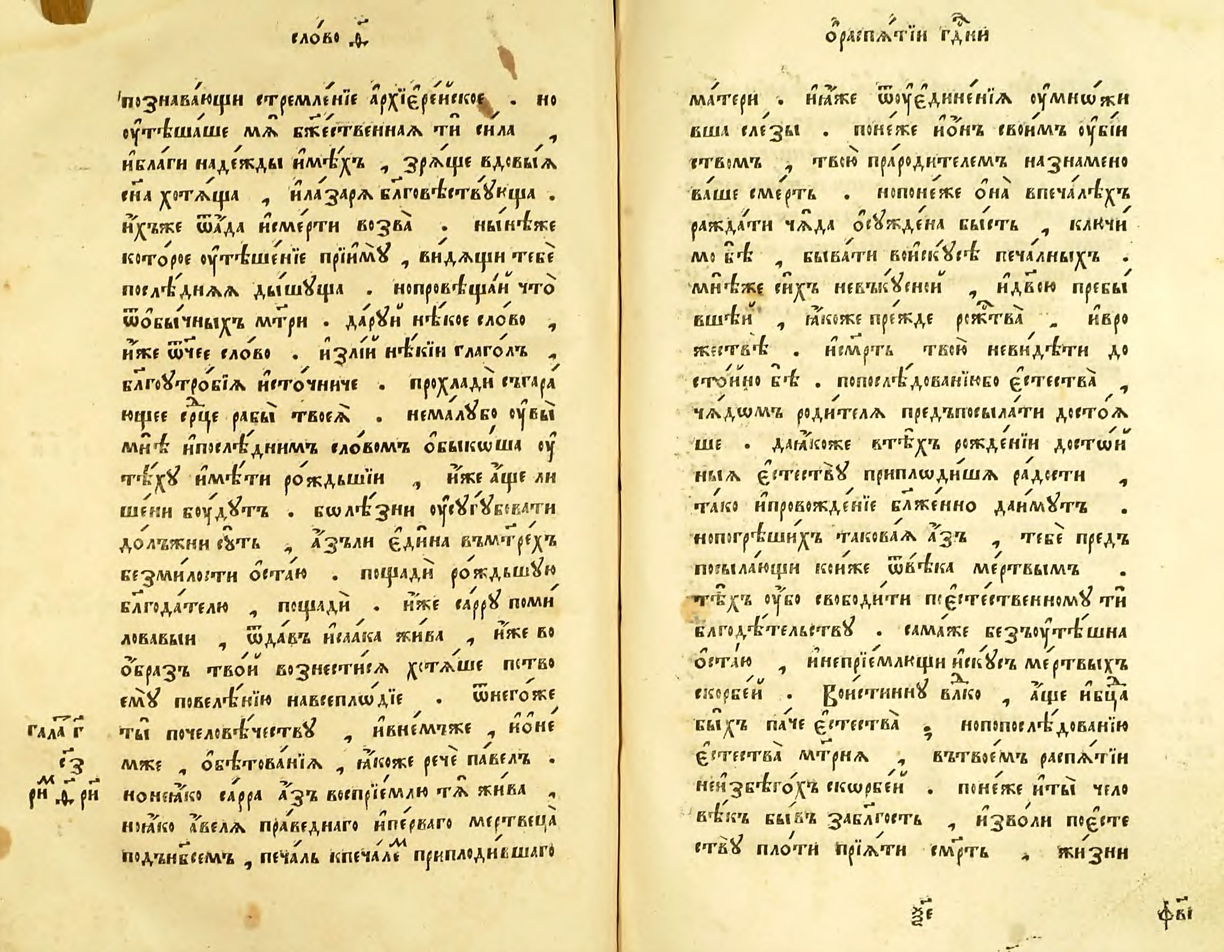 сло́во д҃
познава́ющи стремле́нїе а҆рхїере́йское . но
ѹ҆тѣша́ше мѧ̀ бж҃е́ственнаѧ тѝ си́ла ,
и҆бла́ги наде́жды и҆мѣ́хъ , зрѧ́ще вдовы́ѧ
сн҃а хотѧ́ща , и҆ла́зарѧ бл҃говѣствꙋ́юща .
и҆́хъже ѿа́да и҆сме́рти возва̀ . ны́нѣже
кото́рое ѹ҆тѣше́нїе прїимꙋ̀ , ви́дѧщи тебѐ
послѣ́днѧѧ ды́шꙋща . нопровѣща́й что̀
ѿѻ҆бы́чныхъ мт҃ри . да́рꙋй нѣ́кое сло́во ,
и҆́же ѿ́чее сло́во . и҆злі́й нѣ́кїи глаго́лъ ,
бл҃гоꙋтро́бїѧ и҆сто́чниче . прохладѝ съгара́
ющее ср҃це рабы̀ твоеѧ̀ . нема́лꙋбо ѹ҆вы̀
мнѣ̀ и҆послѣ́днимъ сло́вомъ ѻ҆быко́ша ѹ҆
тѣ́хꙋ и҆мѣ́ти ро́ждьшїи , и҆́же а҆́ще ли
ше́ни бо́удꙋтъ . бѡлѣ́зни ѹ҆сꙋгꙋ́бовати
до́лъжни сꙋ́ть , а҆́зъли є҆ди́на въмт҃рехъ
безми́лости ѻ҆ста́ю . пощадѝ ро́ждьшꙋю
бл҃года́телю , пощадѝ . и҆́же са́ррꙋ поми́
ловавыи , ѿда́въ и҆саа́ка жи́ва , и҆́же во
ѻ҆́бразъ тво́й вознести́сѧ хотѧ́ше пство
емꙋ̀ повелѣ́нїю навсеплѡ́дїе . ѿнего́же
ты̀ почелові́честву , и҆вне́мъже , и҆ѻ҆не́
мже , ѻ҆бѣтова́нїѧ , ꙗ҆́коже речѐ па́велъ .
гала́т г҃
е҃з
рим д҃ рн
ноне҆ꙗ́ко са́рра а҆́зъ воспрїе́млю тѧ̀ жи́ва ,
ноꙗ́ко а́велѧ пра́веднаго и҆пе́рваго мертвеца̀
подънб҃се́мъ , печа́ль кпеча́лем приплоди́вшаго
ѻ҆распѧ́тїи гд҃ни
ма́тери . и҆ꙗ́же ѿѹ҆едине́нїѧ ѹ҆мнѡ́жи
вша сле́зы . поне́же и҆ѻ҆́нъ свои́мъ ѹ҆бі́и
ствомъ , твою̀ прароди́телемъ назнамено
ва́ше сме́рть . нопоне́же ѻ҆на̀ впеча́лѣхъ
ражда́ти чѧ̀да ѻ҆сꙋжде́на бы́сть , ключи́
мо бѣ̀ , быва́ти воискꙋ́сѣ печа́лныхъ .
мнѣ́же си́хъ невъкꙋ́сной , и҆дв҃ою пребы́
вшей , ꙗ҆́коже пре́жде рожтва̀ , и҆вро
жествѣ̀ . и҆см҃рть твою̀ неви́дѣти до
сто́йно бѣ̀ . попослѣ́дованїюбо є҆стества̀ ,
чѧ́дѡмъ роди́телѧ предъпосыла́ти досто́ѧ
ше . даꙗ́коже втѣ́хъ рожде́нїи досто́й
ныѧ є҆стествꙋ̀ приплѡди́шѧ ра́дости ,
та́ко и҆провожде́нїе бл҃же́нно да́имꙋтъ .
нопогрѣши́хъ такова́ѧ а҆́зъ , тебѐ предъ
посыла́ющи ко́иже ѿвѣ́ка ме́ртвымъ .
тѣ́хъ ѹ҆́бо свободи́ти пое҆сте́ственномꙋ тѝ
бл҃годѣ́тельствꙋ . сама́же безъѹ҆тѣ́шна
ѻ҆ста́ю , и҆непрїе́млющи и҆скꙋ́съ ме́ртвыхъ
скорбе́й . Вои́стиннꙋ влⷣко , а҆́ще и҆бц҃а
бы́хъ па́че є҆стества̀ ; нопопослѣ́дованїю
є҆стества̀ мт҃рнѧ , вътвое́мъ распѧ́тїи
неи҆збѣго́хъ скорбе́й . поне́же и҆ты̀ чело
вѣ́къ бы́въ забл҃гость , и҆зво́ли пое҆сте
ствꙋ̀ пло́ти прїѧ́ти см҃рть , жи́зни
ѯ҃е
фв҃і